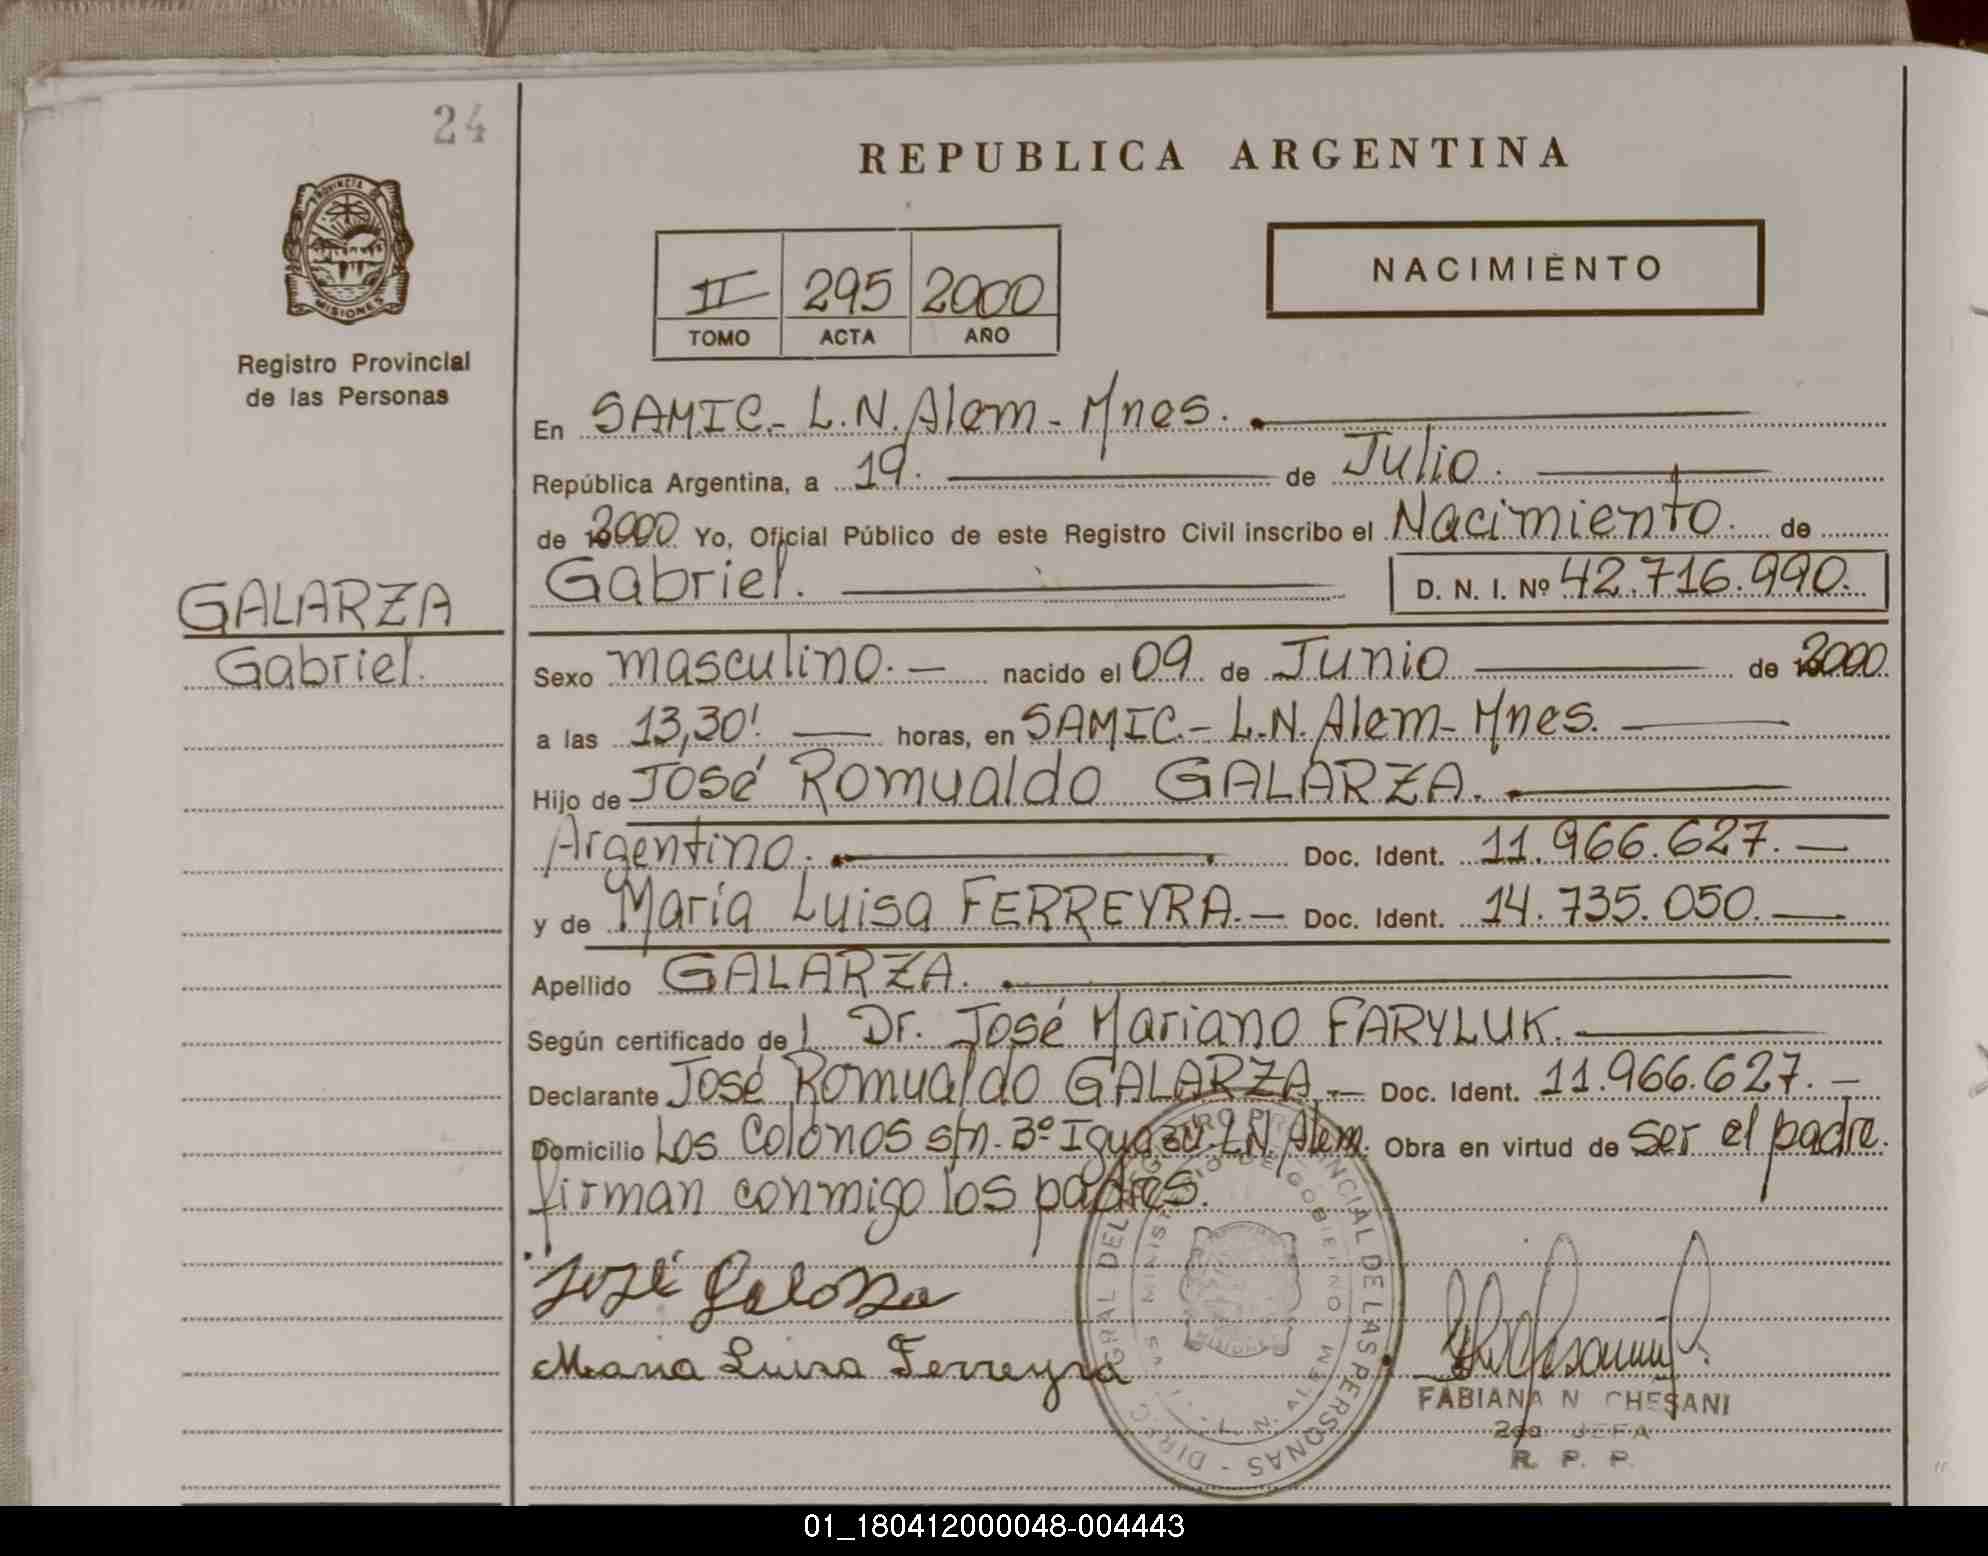 24
REPUBLICA ARGENTINA
PROVINCIA DE
MISIONES
Registro Provincial
de las Personas
II 295 2000
TOMO ACTA AÑO
NACIMIENTO
En SAMIC.- L.N. Alem - Mnes.
República Argentina, a 19. de Julio.
de 2000 Yo, Oficial Público de este Registro Civil inscribo el Nacimiento. de
Gabriel. D. N. I. Nº 42.716.990.
GALARZA
Gabriel.
Sexo masculino.- nacido el 09 de Junio de 2000
a las 13,30' horas, en SAMIC.- L.N. Alem - Mnes.
Hijo de José Romualdo GALARZA.
Argentino. Doc. Ident. 11.966.627.-
y de María Luisa FERREYRA.- Doc. Ident. 14.735.050.-
Apellido GALARZA.
Según certificado de l Dr. José Mariano FARYLUK.
Declarante José Romualdo GALARZA.- Doc. Ident. 11.966.627.-
Domicilio Los Colonos s/n. Bº Iguazú. L.N. Alem. Obra en virtud de ser el padre.
firman conmigo los padres.
José Galarza
Maria Luisa Ferreyra
DIREC. GRAL DEL REGISTRO PROVINCIAL DE LAS PERSONAS
MINISTERIO DE GOBIERNO
L. N. ALEM
MISIONES
FABIANA N CHESANI
2da JEFA
R. P. P.
01_180412000048-004443